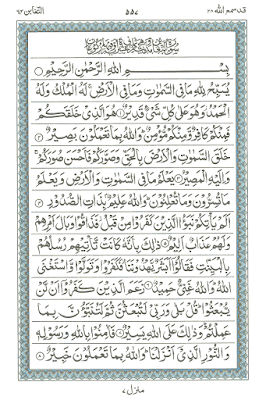 قد سمع الله ٢٨
٥٥٧
التغابن ٦٤
بِسْمِ اللهِ الرَّحْمٰنِ الرَّحِيْمِ
يُسَبِّحُ لِلّٰهِ مَا فِى السَّمٰوٰتِ وَمَا فِى الْاَرْضِ ۚ لَهُ الْمُلْكُ وَلَهُ
الْحَمْدُ وَهُوَ عَلٰى كُلِّ شَىْءٍ قَدِيْرٌ ۝ هُوَ الَّذِىْ خَلَقَكُمْ
فَمِنْكُمْ كَافِرٌ وَّمِنْكُمْ مُّؤْمِنٌ ۚ وَاللهُ بِمَا تَعْمَلُوْنَ بَصِيْرٌ ۝
خَلَقَ السَّمٰوٰتِ وَالْاَرْضَ بِالْحَقِّ وَصَوَّرَكُمْ فَاَحْسَنَ صُوَرَكُمْ ۚ
وَاِلَيْهِ الْمَصِيْرُ ۝ يَعْلَمُ مَا فِى السَّمٰوٰتِ وَالْاَرْضِ وَيَعْلَمُ
مَا تُسِرُّوْنَ وَمَا تُعْلِنُوْنَ ۚ وَاللهُ عَلِيْمٌۢ بِذَاتِ الصُّدُوْرِ ۝
اَلَمْ يَاْتِكُمْ نَبَؤُا الَّذِيْنَ كَفَرُوْا مِنْ قَبْلُ فَذَاقُوْا وَبَالَ اَمْرِهِمْ
وَلَهُمْ عَذَابٌ اَلِيْمٌ ۝ ذٰلِكَ بِاَنَّهٗ كَانَتْ تَّاْتِيْهِمْ رُسُلُهُمْ
بِالْبَيِّنٰتِ فَقَالُوْۤا اَبَشَرٌ يَّهْدُوْنَنَا فَكَفَرُوْا وَتَوَلَّوْا وَّاسْتَغْنَى
اللهُ ۚ وَاللهُ غَنِىٌّ حَمِيْدٌ ۝ زَعَمَ الَّذِيْنَ كَفَرُوْۤا اَنْ لَّنْ
يُّبْعَثُوْا ۚ قُلْ بَلٰى وَرَبِّىْ لَتُبْعَثُنَّ ثُمَّ لَتُنَبَّؤُنَّ بِمَا
عَمِلْتُمْ ۚ وَذٰلِكَ عَلَى اللهِ يَسِيْرٌ ۝ فَاٰمِنُوْا بِاللهِ وَرَسُوْلِهٖ
وَالنُّوْرِ الَّذِىْۤ اَنْزَلْنَا ۚ وَاللهُ بِمَا تَعْمَلُوْنَ خَبِيْرٌ ۝
منزل ٧